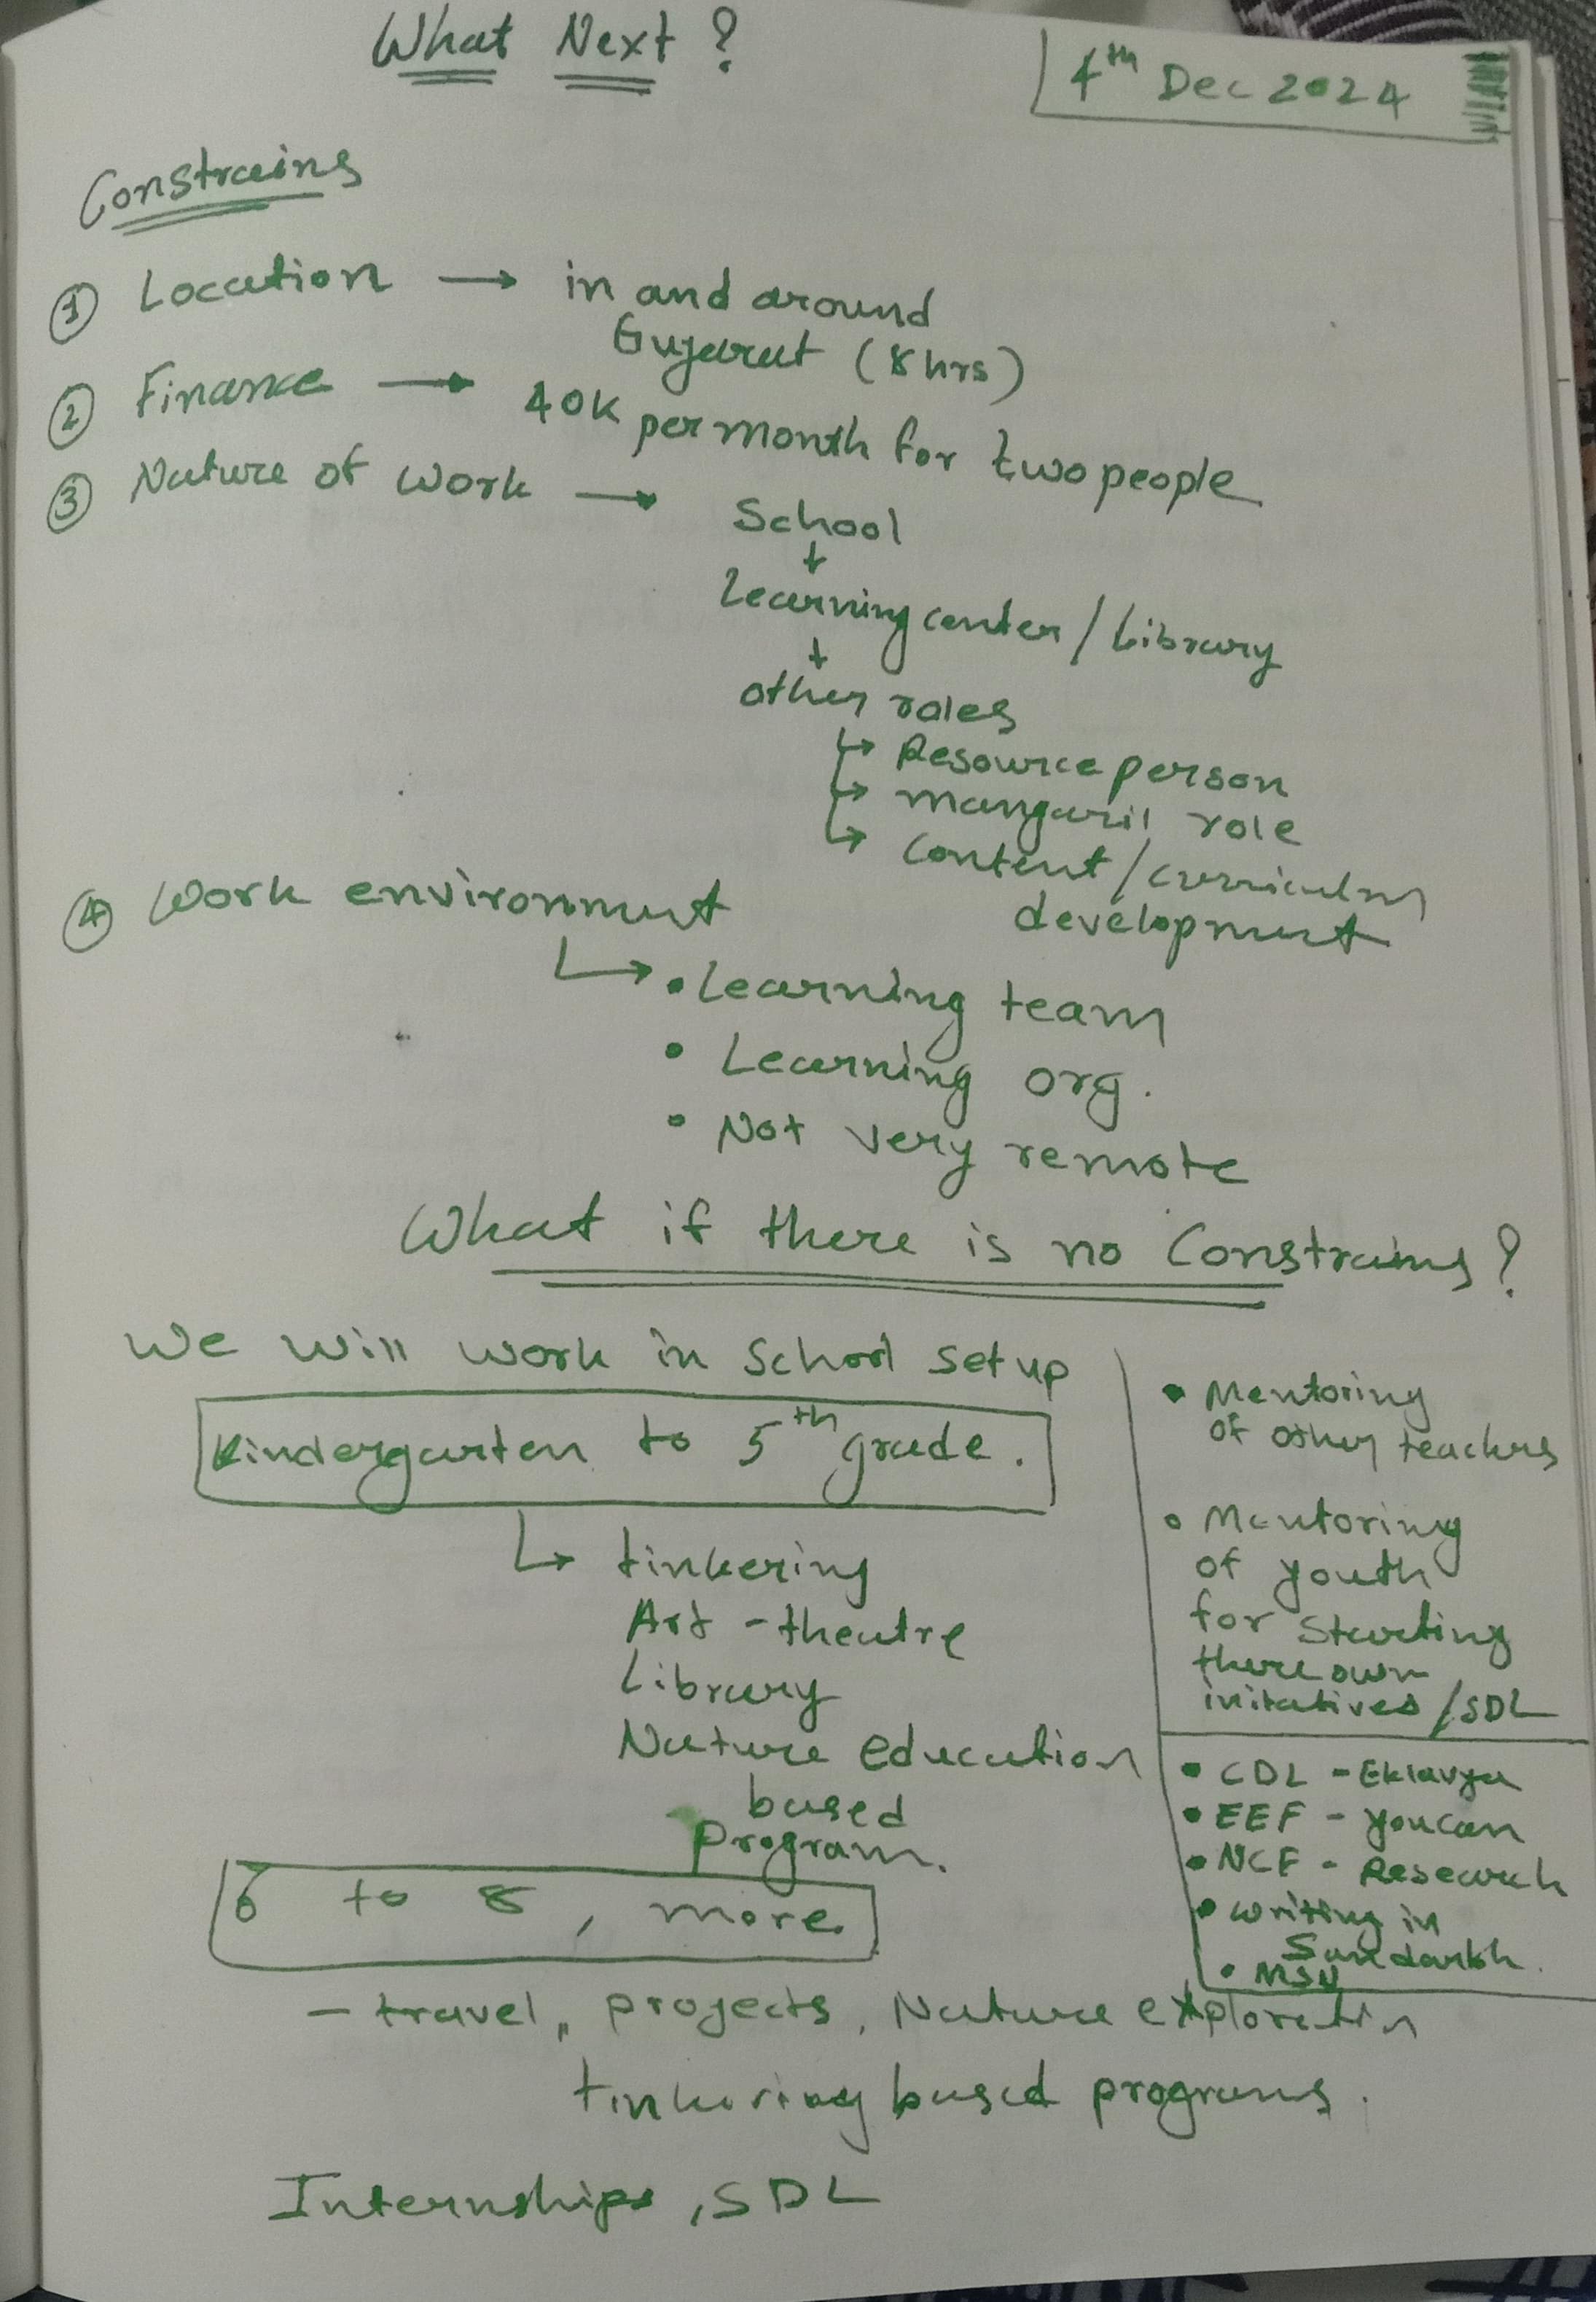 What Next ?
4th Dec 2024
Constrains
① Location → in and around
Gujarat (8 hrs)
② Finance → 40K per month for two people
③ Nature of work → School
+
Learning center / Library
+
other roles
↳ Resource person
↳ role
↳ Content / curriculum
development
④ Work environment
↳ • Learning team
• Learning org.
• Not very remote
What if there is no Constrains ?
We will work in School setup
Kindergarten to 5th grade.
↳ tinkering
Art - theatre
Library
Nature education
based
program.
• Mentoring
of other teachers
• Mentoring
of youth
for starting
there own
initatives / SDL
• CDL - Eklavya
• EEF - youcan
• NCF - Research
• writing in
Sandarbh.
• MSU
6 to 8 , more.
- travel, projects, Nature exploration
tinkering based programs.
Internships, SDL